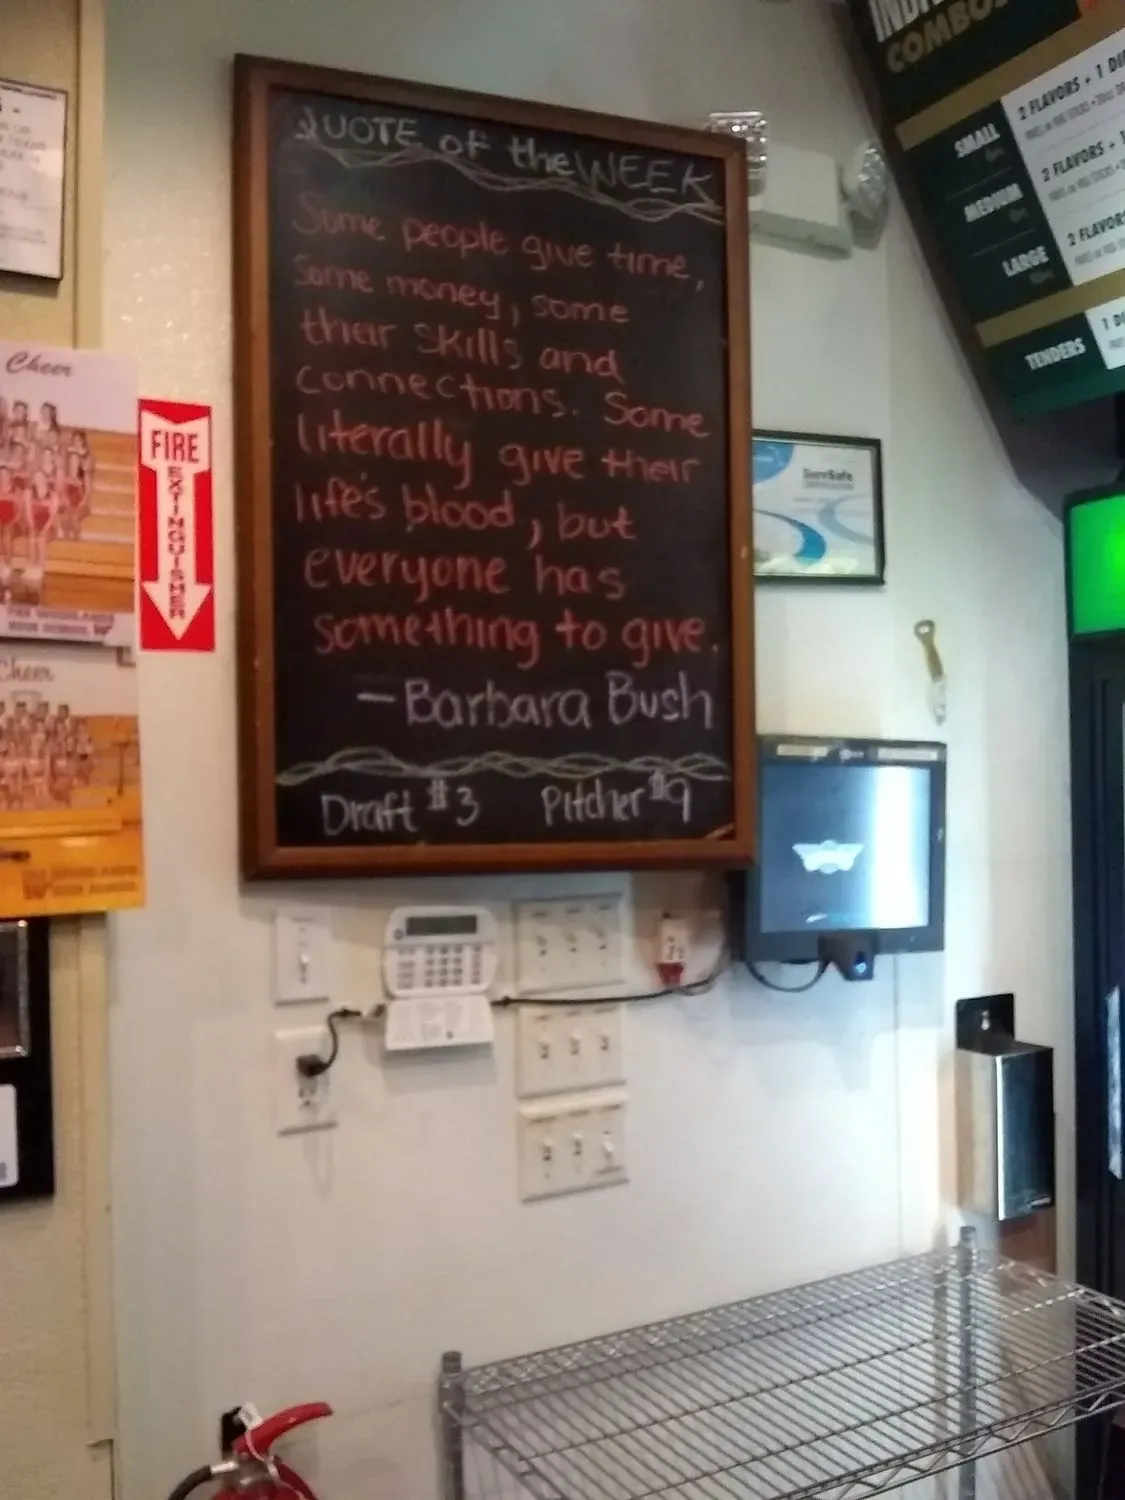 QUOTE of the WEEK
Some people give time,
Some money, some
their skills and
connections. Some
literally give their
life's blood, but
everyone has
something to give.
- Barbara Bush
Draft $3 Pitcher $9
Cheer
FIRE
EXTINGUISHER
Cheer
COMBOS
2 FLAVORS + 1 DI
SMALL
2 FLAVORS +
MEDIUM
2 FLAVORS
LARGE
TENDERS
ServSafe